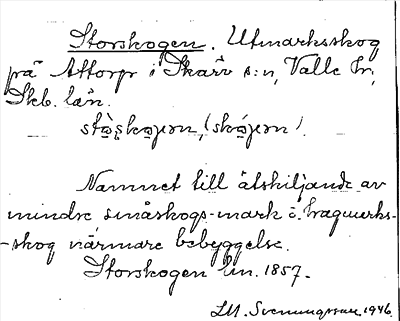 Storskogen. Utmarksskog
på Attorp i Skärv s:n, Valle hd,
Skb. län.
Namnet till åtskiljande av
mindre småskogs-mark o. hagmarks-
-skog närmare bebyggelse.
Storskogen Lm. 1857.
LM. Svenungsson 1946